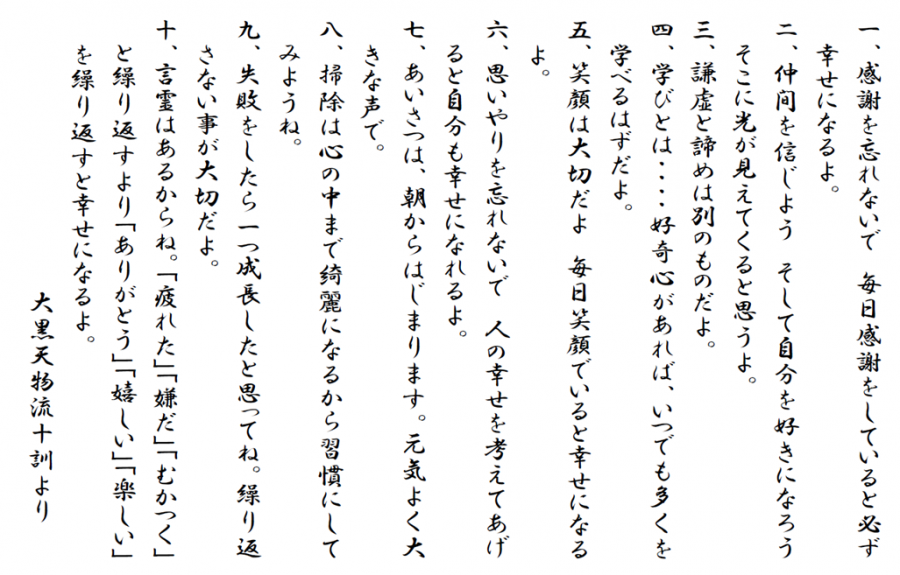 一、感謝を忘れないで　毎日感謝をしていると必ず
幸せになるよ。
二、仲间を信じよう　そして自分を好きになろう
そこに光が見えてくると思うよ。
三、謙虚と諦めは別のものだよ。
四、学びとは・・・・好奇心があれば、いつでも多くを
学べるはずだよ。
五、笑顔は大切だよ　毎日笑顔でいると幸せになる
よ。
六、思いやりを忘れないで　人の幸せを考えてあげ
ると自分も幸せになれるよ。
七、あいさつは、朝からはじまります。元気よく大
きな声で。
八、掃除は心の中まで綺麗になるから習慣にして
みようね。
九、失敗をしたら一つ成長したと思ってね。繰り返
さない事が大切だよ。
十、言霊はあるからね。「疲れた」「嫌だ」「むかつく」
と繰り返すより「ありがとう」「嬉しい」「楽しい」
を繰り返すと幸せになるよ。
大黒天物流十訓より